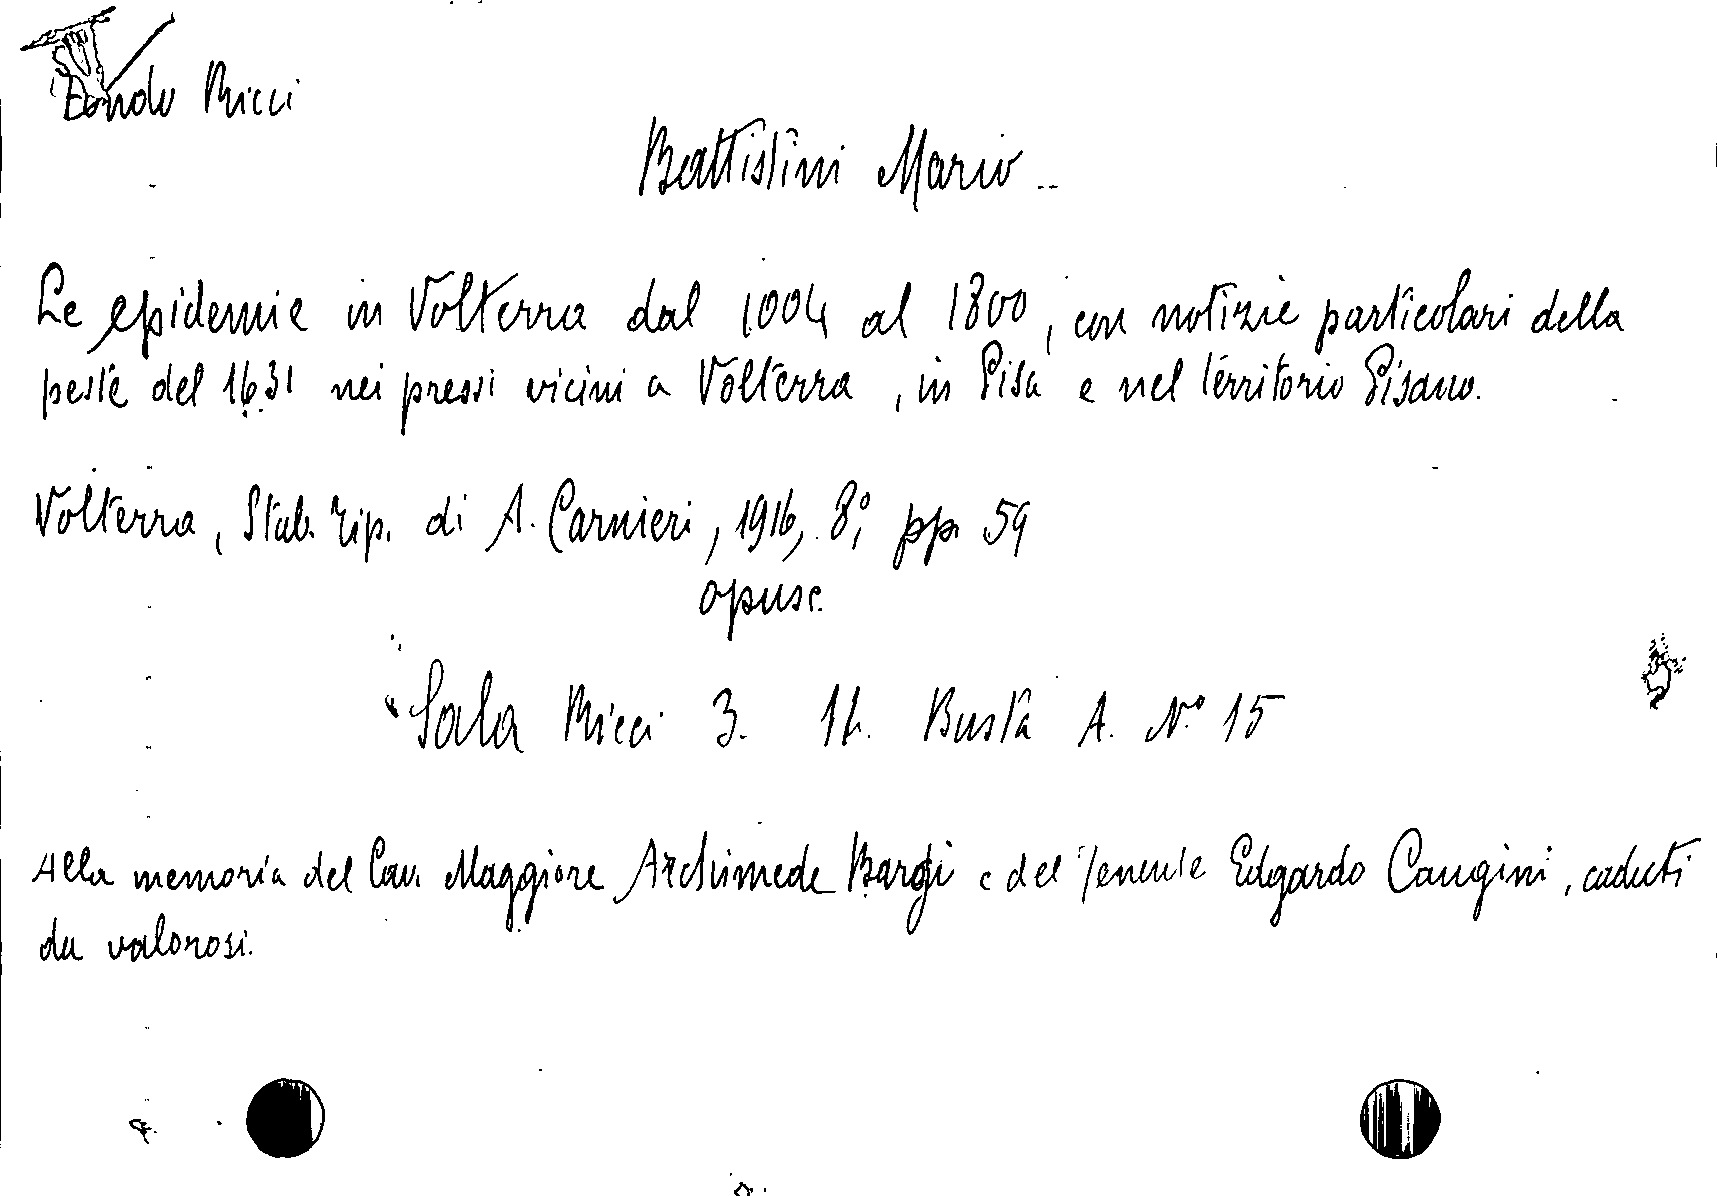 Fondo Ricci
Battistini Mario
Le epidemie in Volterra dal 1004 al 1800, con notizie particolari della
peste del 1631 nei pressi vicini a Volterra, in Pisa e nel territorio Pisano.
Volterra, Stab. Tip. di A. Carnieri, 1916, 8°, pp. 59
opusc.
Sala Ricci 3. 14. Busta A. N.° 15
Alla memoria del Cav. Maggiore Archimede Bargi e del Tenente Edgardo Cangini, caduti
da valorosi.